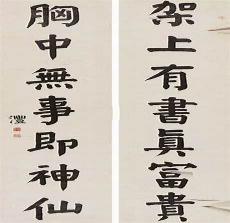 架上有書眞富貴
胸中無事即神仙
澧